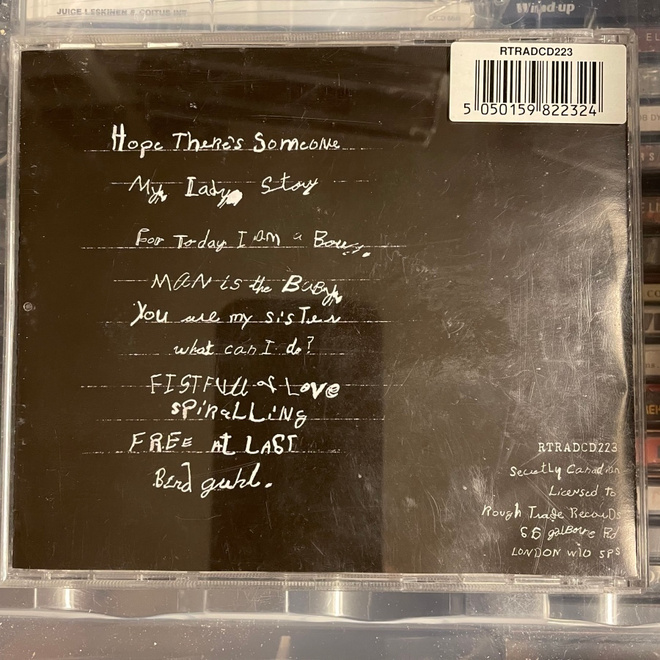 JUICE LESKINEN & COITUS INT
Wired-up
RTRADCD223
5 050159 822324
Hope There's Someone
My Lady Story
For Today I am a Boy.
MAN is the BaBy
You are my sister
what can I do?
FISTFUll of Love
SPiRaLLiNg
FREE At LAST
Bird guhl.
RTRADCD223
Secretly Canadian
Licensed to
Rough Trade Records
66 golborne Rd
LONDON W10 5PS